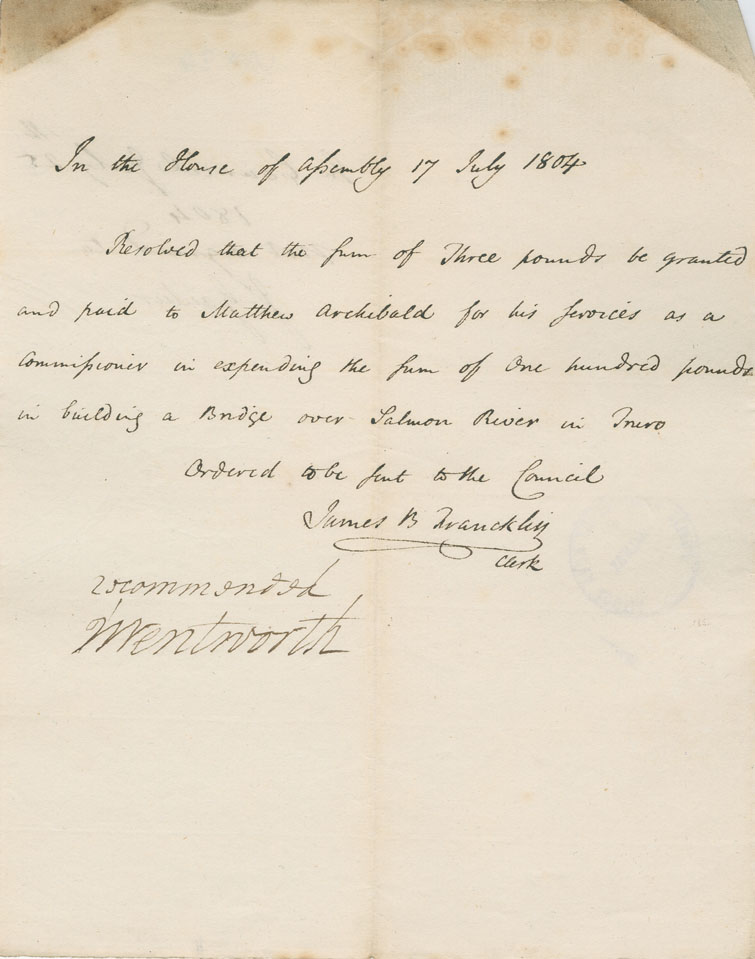 In the House of Assembly 17 July 1804
Resolved that the sum of Three pounds be granted
and paid to Matthew Archibald for his services as a
Commissioner in expending the sum of One hundred pounds
in building a Bridge over Salmon River in Truro
Ordered to be sent to the Council
James B Francklin
Clerk
recommended
Wentworth